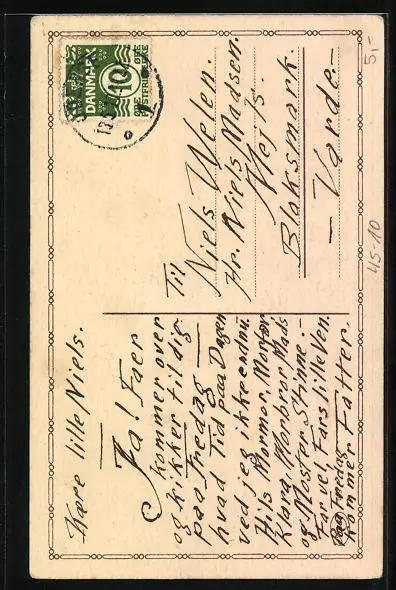 Kære lille Niels.
Ja! Faer
kommer over
og kikker til dig
paa Fredag
hvad Tid paa Dagen
ved jeg ikke endnu.
Hils Mormor, Morfar
Klara, Morbror Mads
og Moster Stinne. —
Farvel Fars lille Ven.
Paa Fredag
kommer Fatter.
Til
Niels Welen.
Hr. Niels Madsen.
Vejrs.
Blaksmark.
— Varde. —
DANMARK
10
ØRE
5,-
45-10